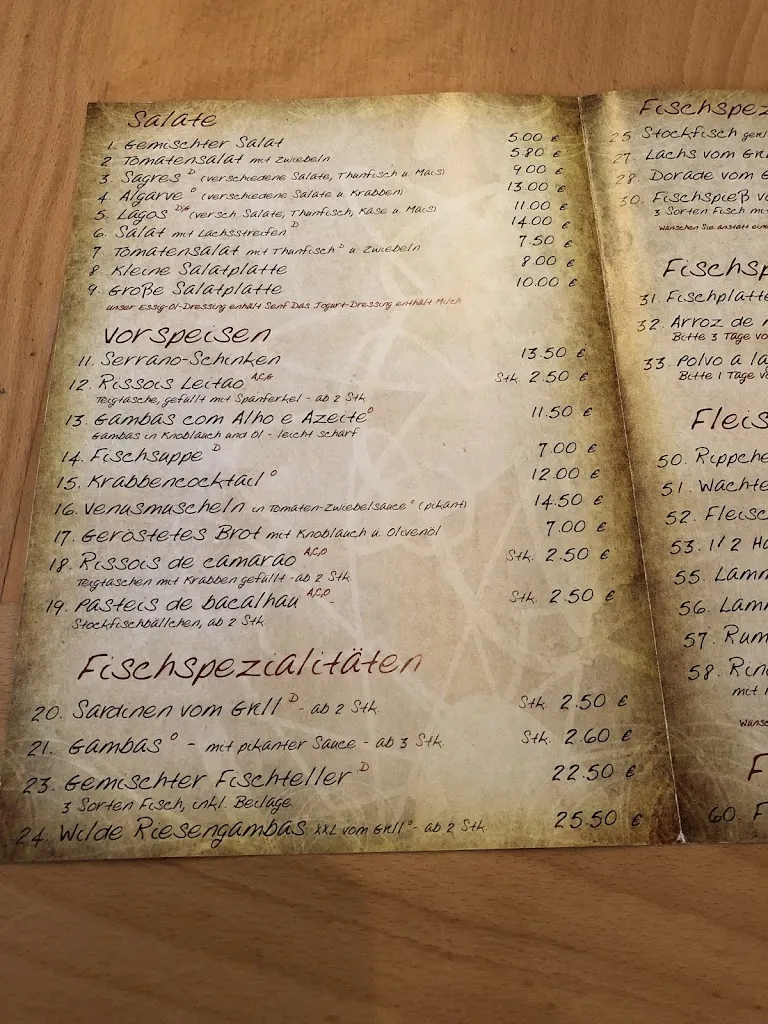 Salate
1. Gemischter Salat 5.00 €
2. Tomatensalat mit Zwiebeln 5.80 €
3. Sagres D (verschiedene Salate, Thunfisch u. Mais) 9.00 €
4. Algarve O (verschiedene Salate u. Krabben) 13.00 €
5. Lagos D,G (versch. Salate, Thunfisch, Käse u. Mais) 11.00 €
6. Salat mit Lachsstreifen D 14.00 €
7. Tomatensalat mit Thunfisch D u. Zwiebeln 7.50 €
8. Kleine Salatplatte 8.00 €
9. Große Salatplatte 10.00 €
unser Essig-Öl-Dressing enthält Senf Das Jogurt-Dressing enthält Milch
Vorspeisen
11. Serrano-Schinken 13.50 €
12. Rissois Leitao A,C,G Stk. 2.50 €
Teigtasche, gefüllt mit Spanferkel - ab 2 Stk.
13. Gambas com Alho e Azeite O 11.50 €
Gambas in Knoblauch und Öl - leicht scharf
14. Fischsuppe D 7.00 €
15. Krabbencocktail O 12.00 €
16. Venusmuscheln in Tomaten-Zwiebelsauce O (pikant) 14.50 €
17. Geröstetes Brot mit Knoblauch u. Olivenöl 7.00 €
18. Rissois de camarao A,C,O Stk. 2.50 €
Teigtaschen mit Krabben gefüllt - ab 2 Stk.
19. Pasteis de bacalhau A,C,D Stk. 2.50 €
Stockfischbällchen, ab 2 Stk
Fischspezialitäten
20. Sardinen vom Grill D - ab 2 Stk. Stk. 2.50 €
21. Gambas O - mit pikanter Sauce - ab 3 Stk. Stk. 2.60 €
23. Gemischter Fischteller D 22.50 €
3 Sorten Fisch, inkl. Beilage
24. Wilde Riesengambas XXL vom Grill O - ab 2 Stk. 25.50 €
Fischspez
25 Stockfisch
27. Lachs vom Gri
28. Dorade vom G
30. Fischspieß vo
3 Sorten Fisch mi
Wünschen Sie anstatt eine
Fischsp
31. Fischplatte
32. Arroz de
Bitte 3 Tage vo
33. Polvo a la
Bitte 1 Tage vo
Fleis
50. Rippche
51. Wachte
52. Fleisc
53. 1/2 Hä
55. Lamm
56. Lam
57. Rum
58. Rin
mit
Wünsc
F
60. F